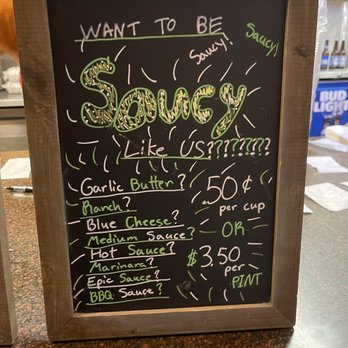 WANT TO BE
Saucy!
Saucy!
Saucy
Like US????????
Garlic Butter?
Ranch?
Blue Cheese?
Medium Sauce?
Hot Sauce?
Marinara?
Epic Sauce?
BBQ Sauce?
.50¢
per cup
OR
$3.50
per
PINT
BUD
LIGHT